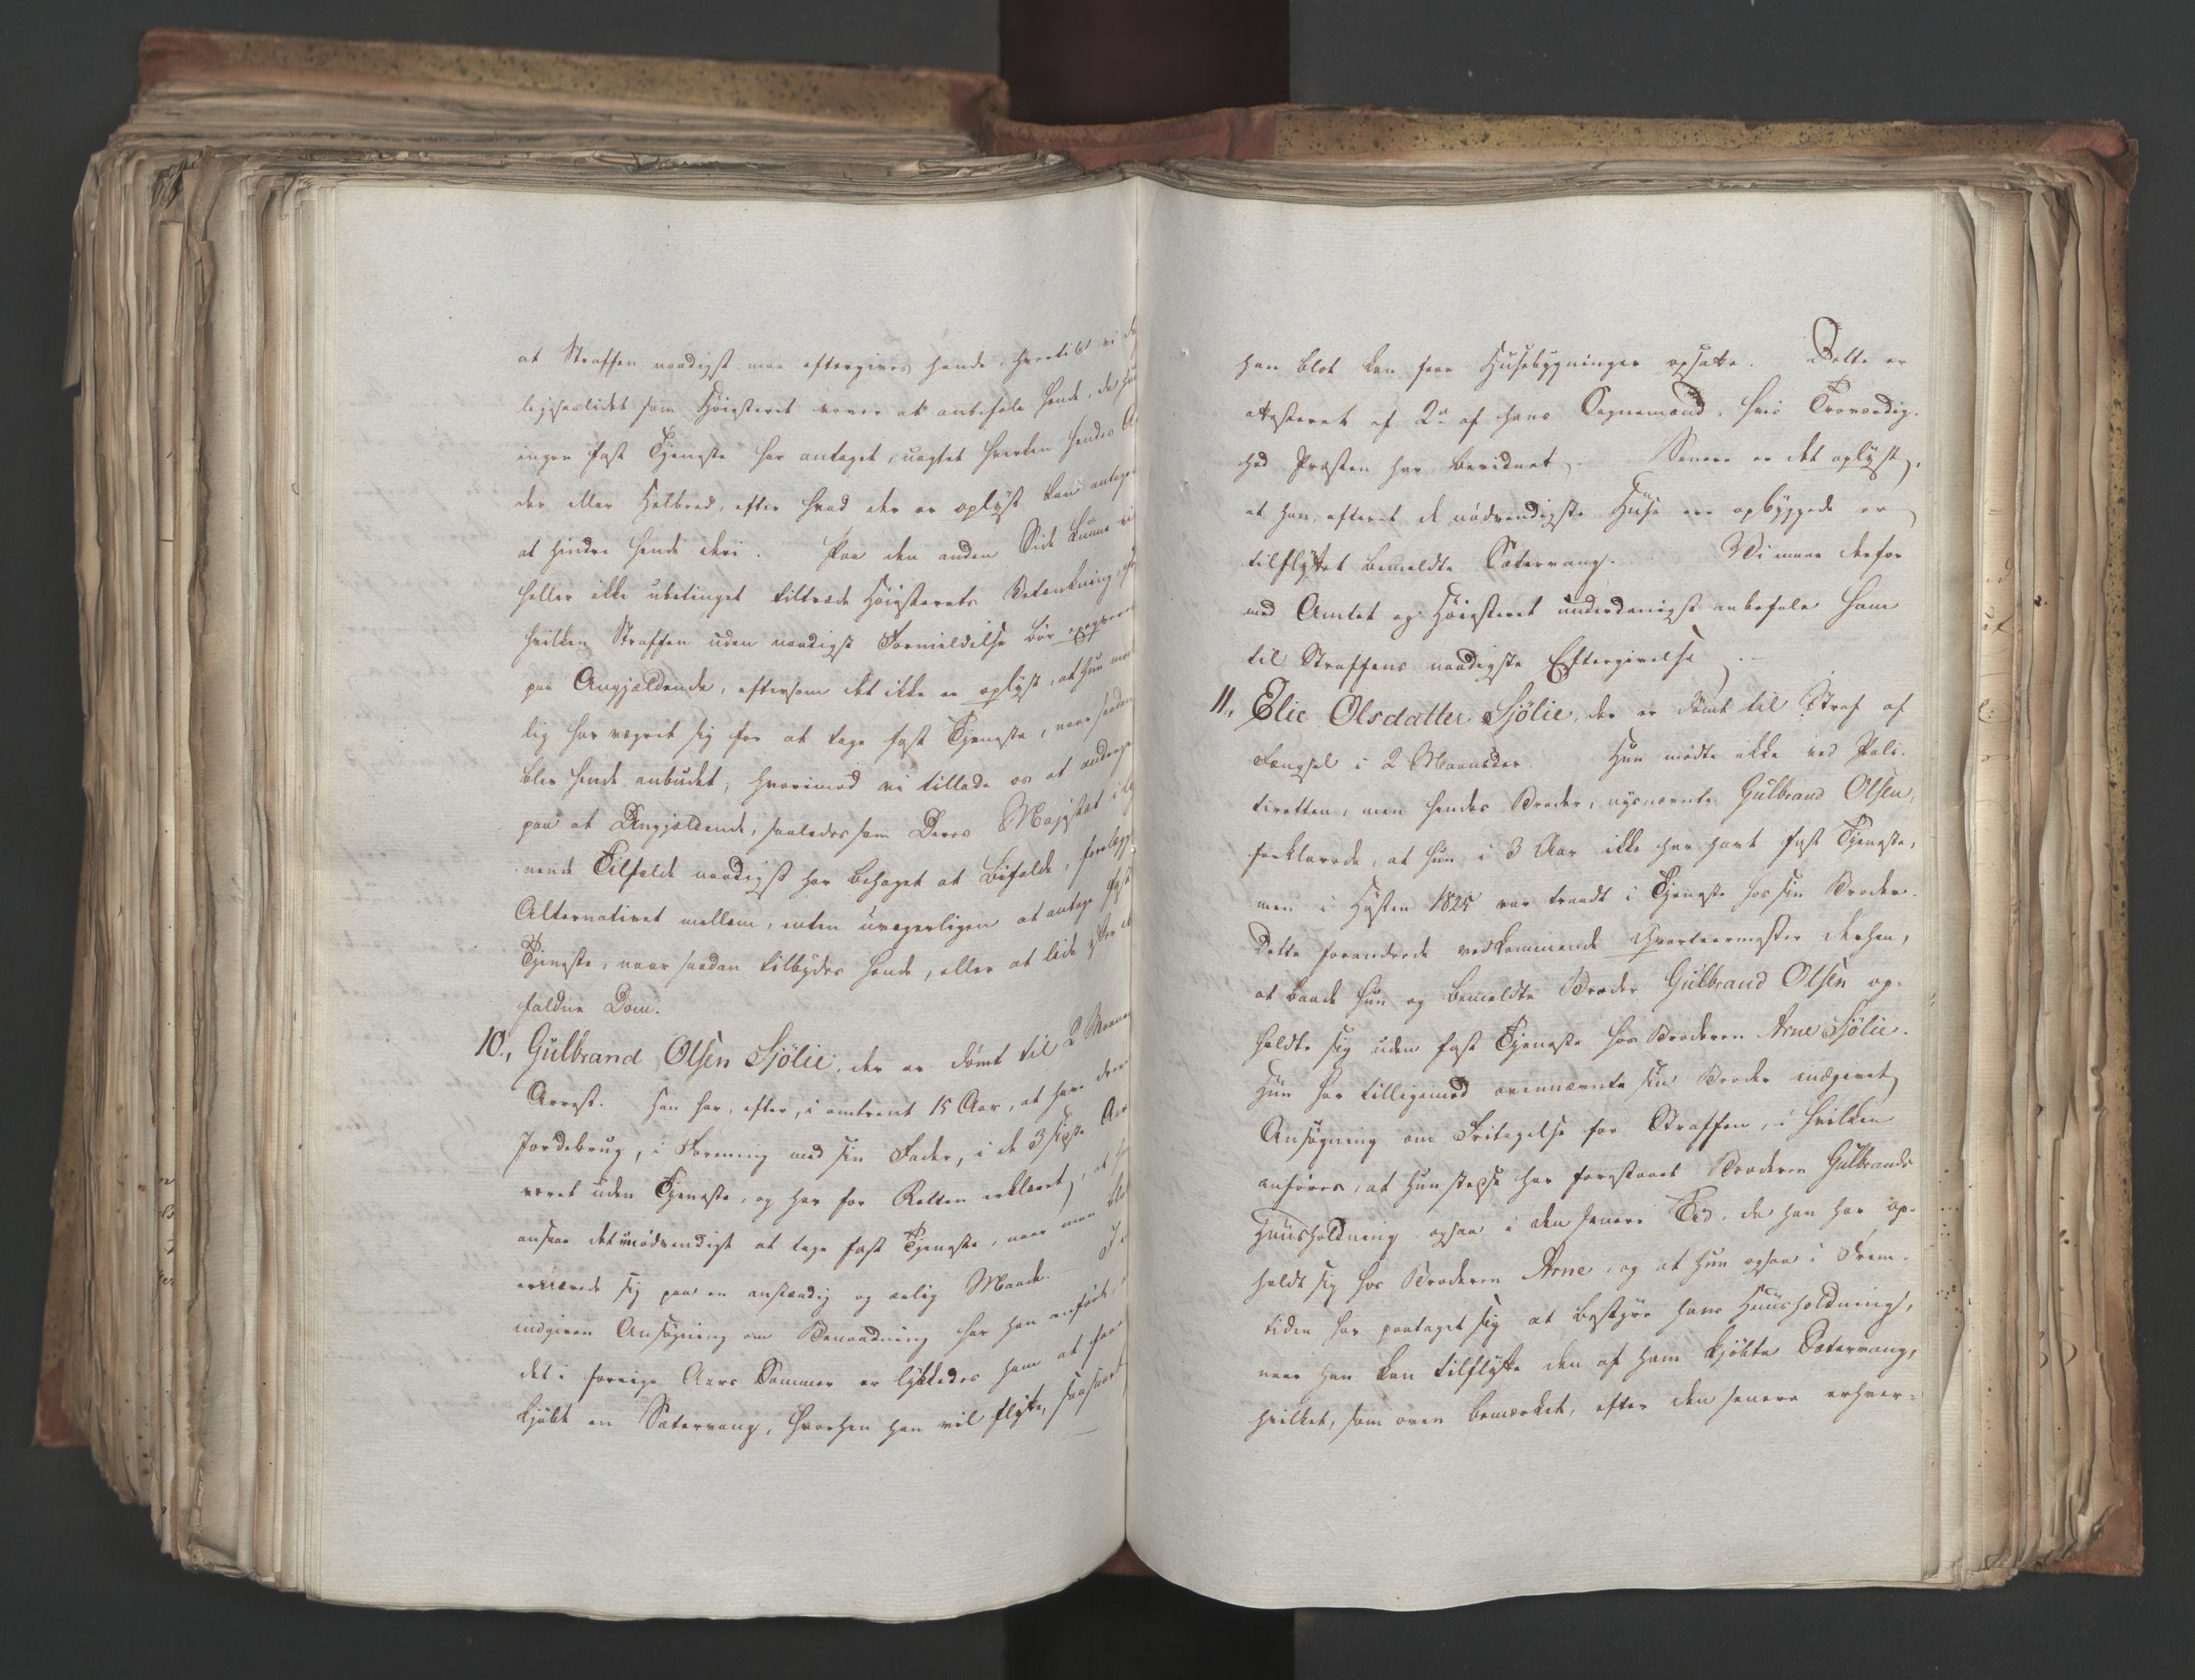 at Straffen naadigst maa eftergives hende, hvortil vi
ligesaalidet som Høiesteret vover at anbefale hende, da hun
ingen fast Tjeneste har antaget, uagtet hverken hendes
der eller Helbred, efter hvad der er oplyst kan antages
at hindre hende deri. Paa den anden Side kunne vi
heller ikke ubetinget tiltræde Høiesterets Betænkning, efter
hvilken Straffen uden naadigst Formildelse bør exeqveres
paa Angjældende, eftersom det ikke er oplyst, at hun
lig har vægret sig for at tage fast Tjeneste, naar saadan
blev hende anbudet, hvorimod vi tillade os at andrage
paa at Angjældende, saaledes som Deres Majestæt i
nende Tilfælde naadigst har behaget at bifalde, forelægges
Alternativet mellem, enten uvægerligen at antage fast
Tjeneste, naar saadan tilbydes hende, eller at lide efter
faldne Dom.
10., Gulbrand Olsen Sjölie, der er dømt til 2 Maaneders
Arrest. Han har, efter, i omtrent 15 Aar, at have drevet
Jordebrug, i Forening med sin Fader, i de 3 sidste Aar
været uden Tjeneste, og har for Retten erklæret, at han
ansaae det unødvendigt at tage fast Tjeneste, naar man blot
ernærede sig paa en anstændig og ærlig Maade. I
indgiven Ansøgning om Benaadning har han anført,
det i forrige Aars Sommer er lykkedes ham at faae
kjøbt en Sætervang, hvorhen han vil flytte, saasnart
han blot kan faae Huusebygninger opsatte. Dette er
attesteret af 2de af hans Sognemænd, hvis Troværdig-
hed Præsten har bevidnet. Senere er det oplyst,
at han, efterat de nødvendigste Huse ere opbyggede er
tilflyttet bemeldte Sætervang. Vi maae derfor
med Amtet og Høiesteret underdanigst anbefale ham
til Straffens naadigste Eftergivelse.
11., Elie Olsdatter Sjölie, der er dømt til Straf af
Fængsel i 2 Maaneder. Hun mødte ikke ved Poli-
tiretten, men hendes Broder, nysnævnte Gulbrand Olsen,
forklarede, at hun i 3 Aar ikke har havt fast Tjeneste,
men i Høsten 1825 var traadt i Tjeneste hos sin Broder.
Dette forandrede vedkommende Qvarteermester derhen,
at baade hun og bemeldte Broder Gulbrand Olsen op-
holdte sig uden fast Tjeneste hos Broderen Arne Sjölie.
Hun har tilligemed ovennævnte sin Broder indgivet
Ansøgning om Fritagelse for Straffen, i hvilken
anføres, at hun stedse har forestaaet Broderen Gulbrands
Huusholdning ogsaa i den senere Tid, da han har op-
holdt sig hos Broderen Arne, og at hun ogsaa i Frem-
tiden har paataget sig at bestyre hans Huusholdning,
naar han kan tilflytte den af ham kjøbte Sætervang,
hvilket, som oven bemærket, efter den senere erhver-